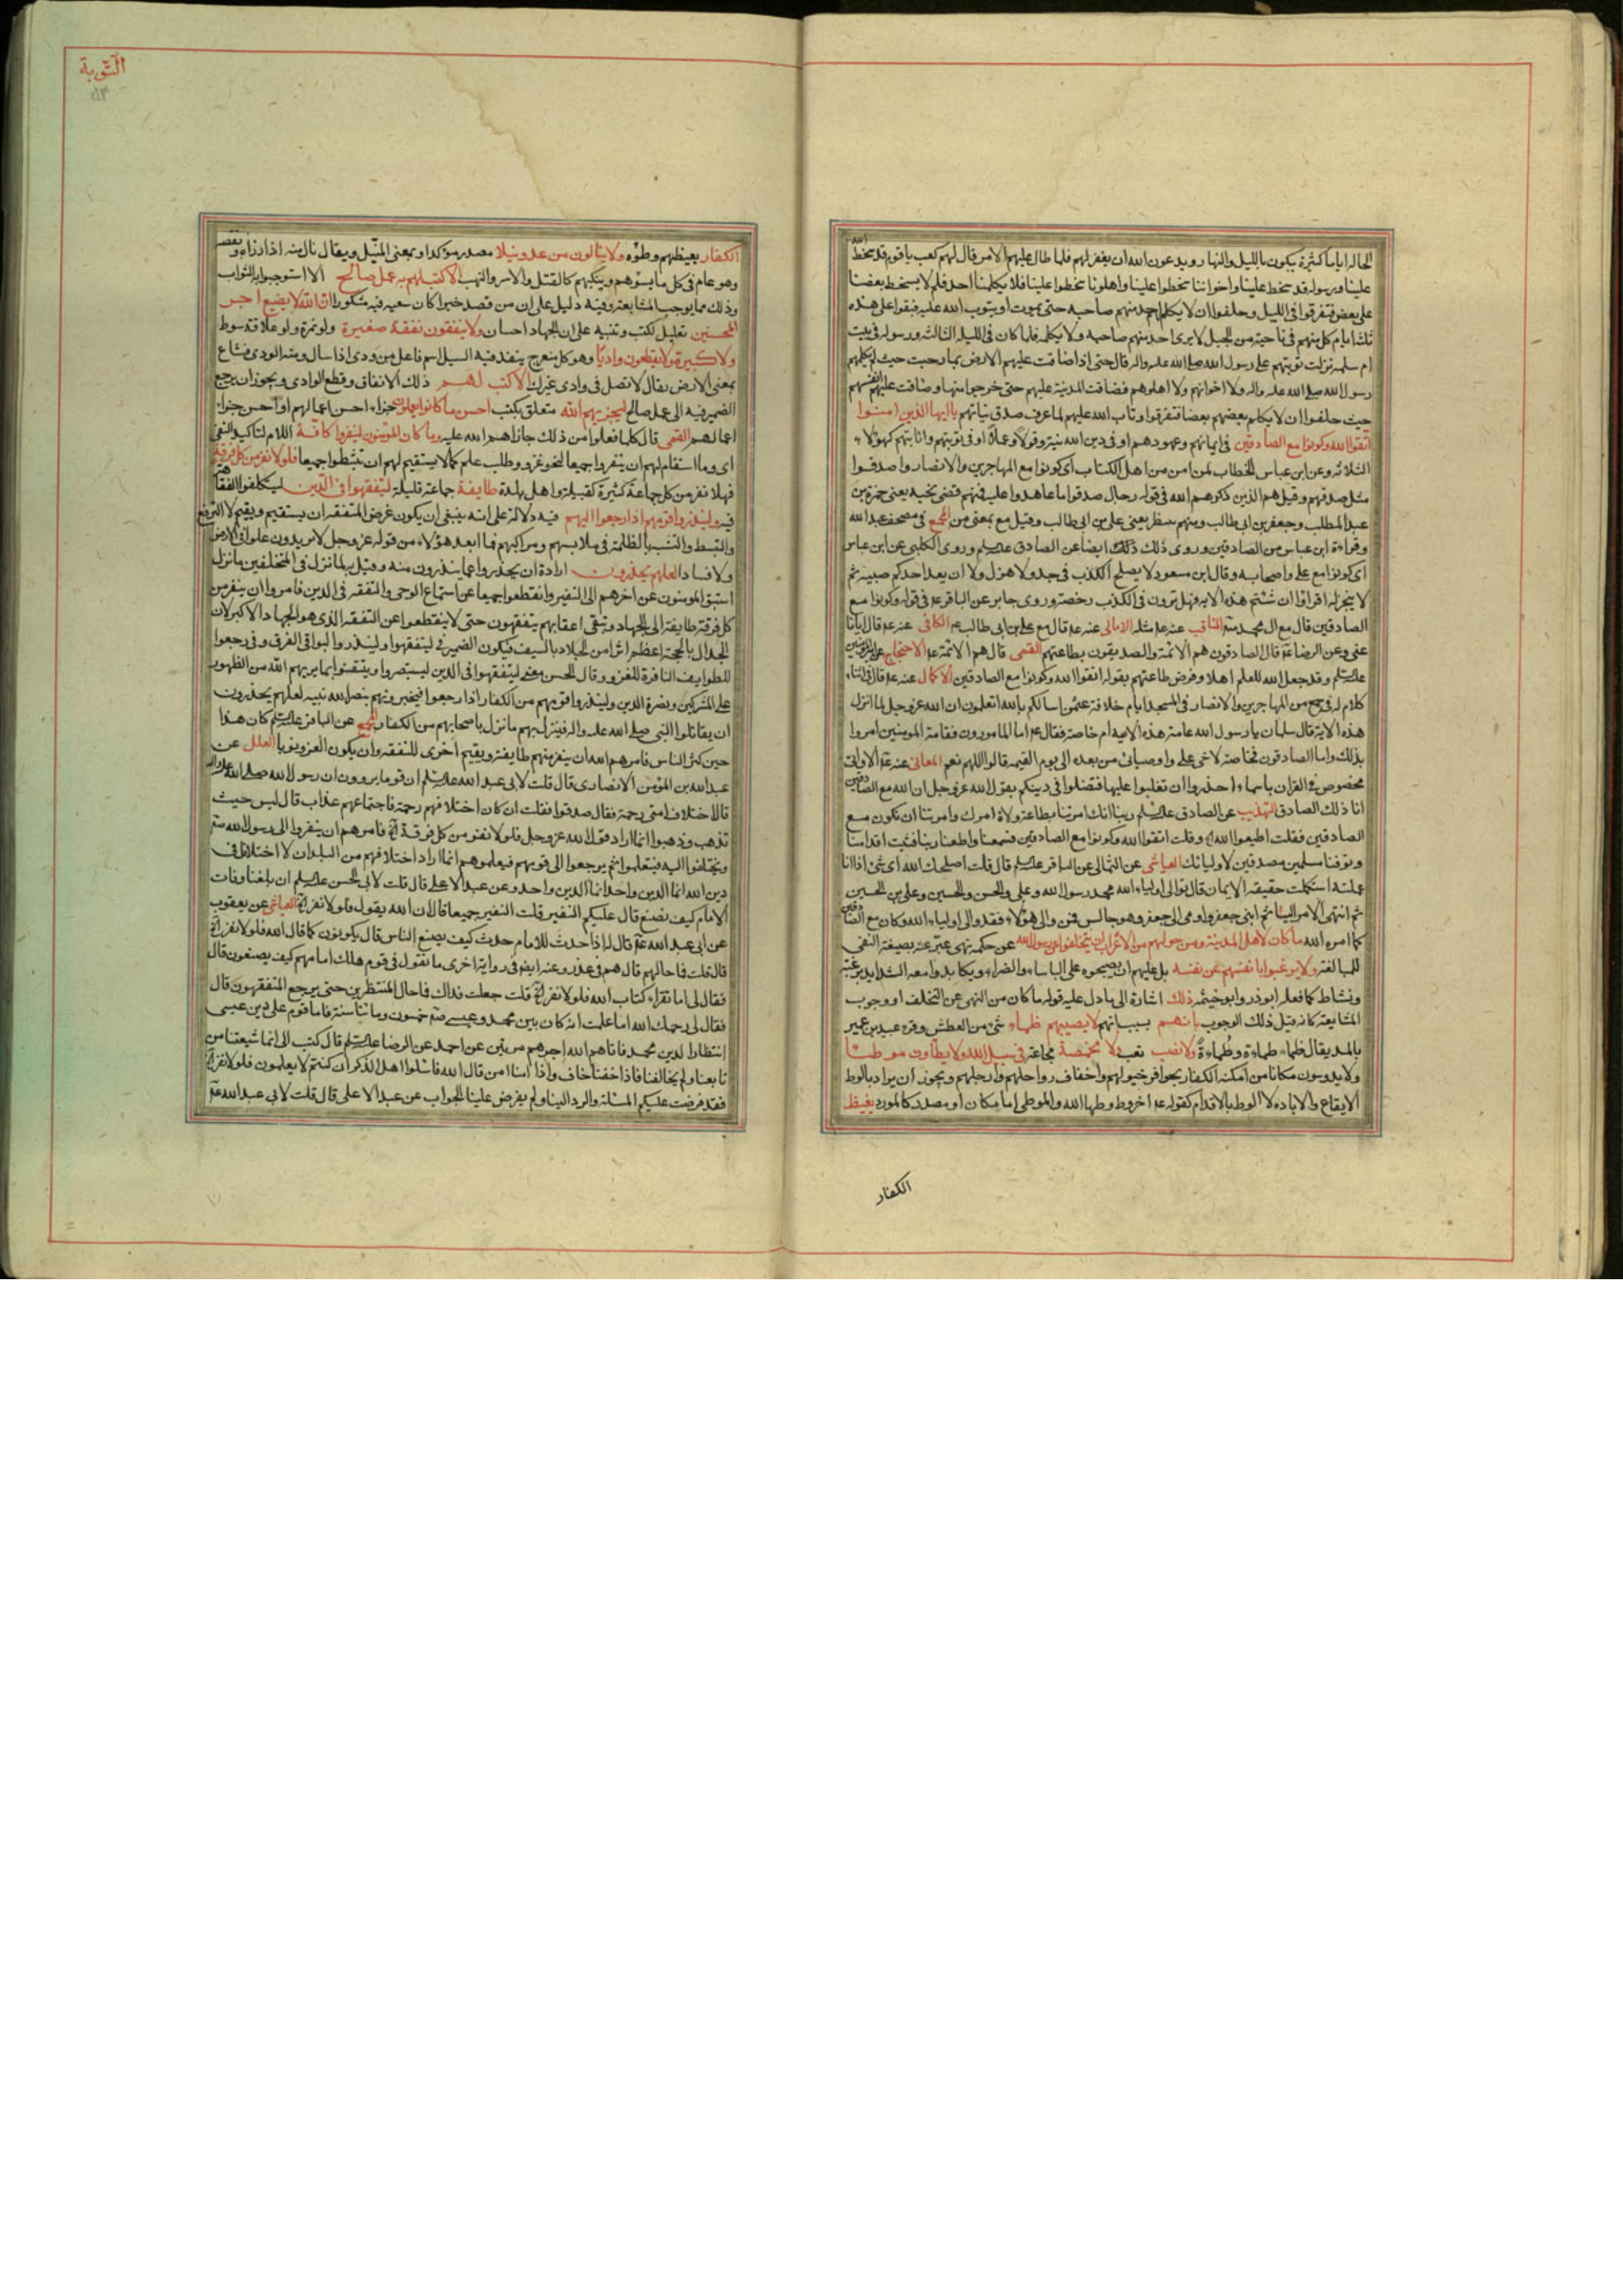 الحاله اياما كثيرة يبكون بالليل والنهار ويدعون الله ان يغفر لهم فلما طال عليهم الامر قال لهم كعب يا قوم قد سخط الله
علينا ورسوله قد سخط علينا واخواننا سخطوا علينا واهلونا سخطوا علينا فلا يكلمنا احد فلم لا يسخط بعضنا
على بعض فتفرقوا فى الليل وحلفوا ان لا يكلم احد منهم صاحبه حتى يموت او يتوب الله عليه فبقوا على هذه
ثلثة ايام كل منهم فى ناحية من الجبل لا يرى احد منهم صاحبه ولا يكلمه فلما كان فى الليلة الثالثة ورسوله فى بيت
ام سلمه نزلت توبتهم على رسول الله صلى الله عليه واله قال حتى اذا ضاقت عليهم الارض بما رحبت حيث لم يكلمهم
رسول الله صلى الله عليه واله ولا اخوانهم ولا اهلوهم فضاقت المدينة عليهم حتى خرجوا منها وضاقت عليهم انفسهم
حيث حلفوا ان لا يكلم بعضهم بعضا فتفرقوا وتاب الله عليهم لما عرف صدق نياتهم يا ايها الذين امنوا
اتقوا الله وكونوا مع الصادقين فى ايمانهم وعهودهم او فى دين الله نية وقولا وعملا او فى توبتهم وانابتهم كهؤلاء
الثلاثه وعن ابن عباس الخطاب لمن امن من اهل الكتاب اى كونوا مع المهاجرين والانصار واصدقوا
مثل صدقهم وقيل هم الذين ذكرهم الله فى قوله رجال صدقوا ما عاهدوا الله عليه فمنهم من قضى نحبه يعنى حمزة بن
عبد المطلب وجعفر بن ابى طالب ومنهم من ينتظر يعنى على بن ابى طالب وقيل مع بمعنى من المجمع فى مصحف عبد الله
وقراءة ابن عباس من الصادقين وروى ذلك ايضا عن الصادق عليه السلم وروى الكلبى عن ابن عباس
اى كونوا مع على واصحابه وقال ابن مسعود لا يصلح الكذب فى جد ولا هزل ولا ان يعد احدكم صبيه ثم
لا ينجز له اقراؤا ان شئتم هذه الايه فهل ترون فى الكذب رخصة وروى جابر عن الباقر ع فى قوله وكونوا مع
الصادقين قال مع ال محمد المناقب عنه ع مثله الامالى عنه ع قال مع على بن ابى طالب ع الكافى عنه ع قال ايانا
عنى وعن الرضا ع قال الصادقون هم الائمة والصديقون بطاعتهم القمى قال هم الائمة ع الاحتجاج عن امير المؤمنين
عليه السلم وقد جعل الله للعلم اهلا وفرض طاعتهم بقوله اتقوا الله وكونوا مع الصادقين الاكمال عنه ع قال فى اثناء
كلام له فى جمع من المهاجرين والانصار فى المسجد ايام خلافة عثمن اسالكم بالله اتعلمون ان الله عز وجل لما انزل
هذه الاية قال سلمان يا رسول الله عامة هذه الايه ام خاصة فقال ع اما المامورون فعامة المومنين امروا
بذلك واما الصادقون فخاصة لاخى على واوصيائى من بعده الى يوم القيمه قالوا اللهم نعم المعانى عنه ع الا وانى
مخصوص فى القران باسماء احذروا ان تغلبوا عليها فتضلوا فى دينكم بقول الله عز وجل ان الله مع الصادقين
انا ذلك الصادق التهذيب عن الصادق عليه السلم ربنا انك امرتنا بطاعة ولاة امرك وامرتنا ان نكون مع
الصادقين فقلت اطيعوا الله وقلت اتقوا الله وكونوا مع الصادقين فسمعنا واطعنا ربنا فثبت اقدامنا
وتوفنا مسلمين مصدقين لاوليائك العياشى عن الثمالى عن الباقر عليه السلم قال قلت اصلحك الله اى شئ اذا انا
عملته استكملت حقيقه الايمان قال توالى اولياء الله محمد رسول الله وعلى والحسن والحسين وعلى بن الحسين
ثم انتهى الامر الينا ثم ابنى جعفر واومى الى جعفر وهو جالس فمن والى هؤلاء فقد والى اولياء الله وكان مع الصادقين
كما امره الله ما كان لاهل المدينة ومن حولهم من الاعراب ان يتخلفوا عن رسول الله عن حكمه نهى عبر عنه بصيغة النفى
للمبالغة ولا يرغبوا بانفسهم عن نفسه بل عليهم ان يصحبوه على الباساء والضراء ويكابدوا معه الشدايد برغبة
ونشاط كما فعله ابوذر وابو خيثمه ذلك اشارة الى ما دل عليه قوله ما كان من النهى عن التخلف او وجوب
المشايعة كانه قيل ذلك الوجوب بانهم بسبب انهم لا يصيبهم ظماء شئ من العطش وقرء عبيد بن عمير
بالمد يقال ظماء ظماءة وظماءة ولا نصب تعب ولا مخمصة مجاعة فى سبيل الله ولا يطاون موطئا
ولا يدوسون مكانا من امكنه الكفار بحوافر خيولهم واخفاف رواحلهم وارجلهم ويجوز ان يراد بالوطئ
الايقاع والاباده لا الوطئ بالاقدام كقوله ع اخر وطئة وطئها الله والموطئ اما مكان او مصدر كالمورد يغيظ
الكفار
التوبة
الكفار يغيظهم وطؤه ولا ينالون من عدو نيلا مصدر موكد او بمعنى المنيل ويقال نال منه اذا رزاه ونقصه
وهو عام فى كل ما يسوؤهم وينكيهم كالقتل والاسر والنهب الا كتب لهم به عمل صالح الا استوجبوا به الثواب
وذلك مما يوجب المشايعة وفيه دليل على ان من قصد خيرا كان سعيه فيه مشكورا ان الله لا يضيع اجر
المحسنين تعليل لكتب وتنبيه على ان الجهاد احسان ولا ينفقون نفقة صغيرة ولو تمرة ولو علاقة سوط
ولا كبيرة ولا يقطعون واديا وهو كل منعرج ينفذ فيه السيل اسم فاعل من ودى اذا سال ومنه الودى فشاع
بمعنى الارض يقال لا تصل فى وادى غيرك الا كتب لهم ذلك الانفاق وقطع الوادى ويجوز ان يرجع
الضمير فيه الى عمل صالح ليجزيهم الله متعلق بكتب احسن ما كانوا يعملون جزاء احسن اعمالهم او احسن جزاء
اعمالهم القمى قال كلما فعلوا من ذلك جازاهم الله عليه وما كان المؤمنون لينفروا كافة اللام لتاكيد النفى
اى وما استقام لهم ان ينفروا جميعا لنحو غزو وطلب علم كما لا يستقيم لهم ان تثبطوا جميعا فلولا نفر من كل فرقة منهم
فهلا نفر من كل جماعة كثيرة كقبيلة واهل بلدة طايفة جماعة قليلة ليتفقهوا فى الدين ليتكلفوا الفقاهة
فيه ولينذروا قومهم اذا رجعوا اليهم فيه دلالة على انه ينبغى ان يكون غرض المتفقه ان يستقيم ويقيم لا الترفع
والتبسط والتشبه بالظلمة فى ملابسهم ومراكبهم فما ابعد هؤلاء من قوله عز وجل لا يريدون علوا فى الارض
ولا فسادا لعلهم يحذرون ارادة ان يحذروا عما ينذرون منه وقيل لما نزل فى المتخلفين ما نزل
استبق المومنون عن اخرهم الى النفير وانقطعوا جميعا عن استماع الوحى والتفقه فى الدين فامروا ان ينفر من
كل فرقة طايفة الى الجهاد وتبقى اعقابهم يتفقهون حتى لا ينقطعوا عن التفقه الذى هو الجهاد الاكبر لان
الجدال بالحجة اعظم اثرا من الجلاد بالسيف فيكون الضمير فى ليتفقهوا ولينذروا لبواقى الفرق وفى رجعوا
للطوايف النافرة للغزو وقال الحسن معنى ليتفقهوا فى الدين ليستبصروا ويتيقنوا بما يريهم الله من الظهور
على المشركين ونصرة الدين ولينذروا قومهم من الكفار اذا رجعوا فيخبرونهم بنصر الله نبيه لعلهم يحذرون
ان يقاتلوا النبى صلى الله عليه واله فينزل بهم ما نزل باصحابهم من الكفار المجمع عن الباقر عليه السلم كان هذا
حين كثر الناس فامرهم الله ان ينفر منهم طايفة ويقيم اخرى للتفقه وان يكون الغزو نوبا العلل عن
عبد الله بن المؤمن الانصارى قال قلت لابى عبد الله عليه السلم ان قوما يروون ان رسول الله صلى الله عليه واله
قال اختلاف امتى رحمة فقال صدقوا فقلت ان كان اختلافهم رحمة فاجتماعهم عذاب قال ليس حيث
تذهب وذهبوا انما اراد قول الله عز وجل فلولا نفر من كل فرقة فامرهم ان ينفروا الى رسول الله
ويختلفوا اليه فيتعلموا ثم يرجعوا الى قومهم فيعلموهم انما اراد اختلافهم من البلدان لا اختلاف فى
دين الله انما الدين واحد انما الدين واحد وعن عبد الاعلى قال قلت لابى الحسن عليه السلم ان بلغنا وفات
الامام كيف نصنع قال عليكم النفير قلت النفير جميعا قال ان الله يقول فلولا نفر العياشى عن يعقوب
عن ابى عبد الله ع قال له اذا حدث للامام حدث كيف يصنع الناس قال يكونون كما قال الله فلولا نفر
قال قلت فما حالهم قال هم فى عذر وعنه ايضا فى رواية اخرى ما تقول فى قوم هلك امامهم كيف يصنعون قال
فقال لى اما تقراء كتاب الله فلولا نفر قلت جعلت فداك فما حال المنتظرين حتى يرجع المتفقهون قال
فقال لى رحمك الله اما علمت انه كان بين محمد وعيسى خمسون وماتا سنة فمات قوم على دين عيسى
انتظارا لدين محمد فاتاهم الله اجرهم مرتين عن احمد عن الرضا عليه السلم قال كتب الى انما شيعتنا من
تابعنا ولم يخالفنا فاذا خفنا خاف واذا امنا امن قال الله فاسئلوا اهل الذكر ان كنتم لا يعلمون فلولا نفر
فقد فرضت عليكم المسئلة والرد الينا ولم يفرض علينا الجواب عن عبد الاعلى قال قلت لابى عبد الله ع